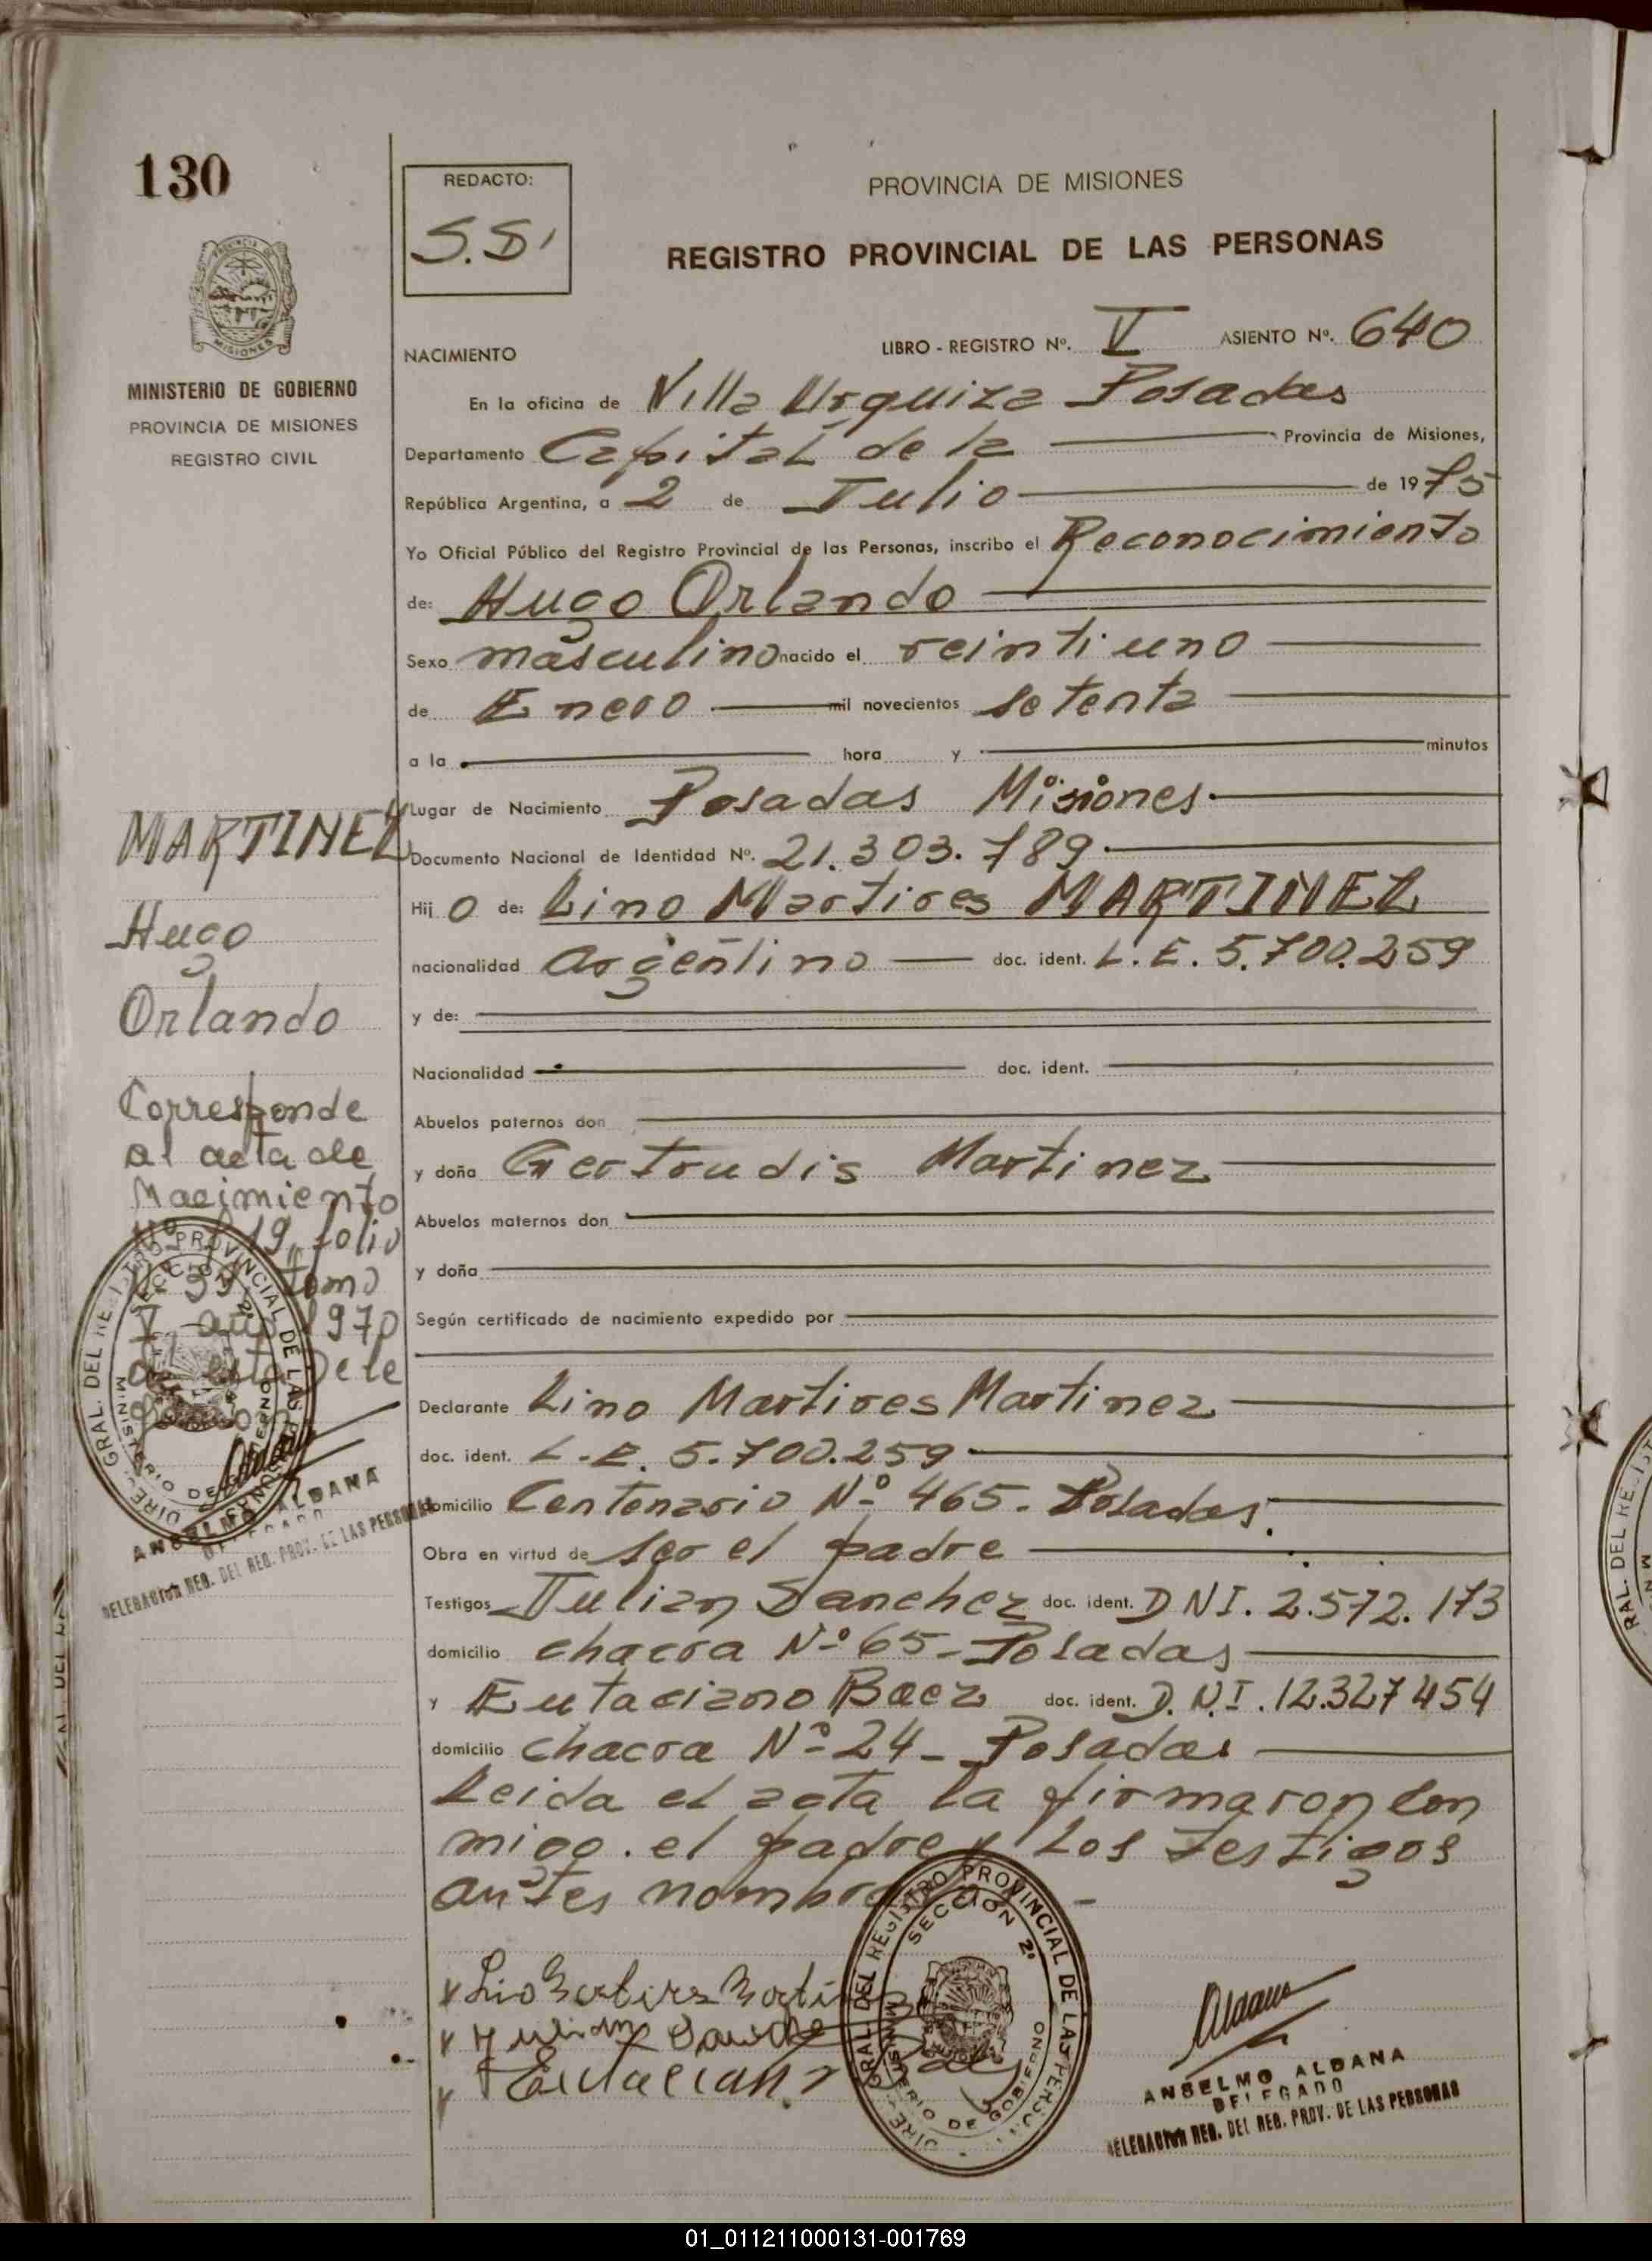 130
REDACTO:
S.S.
PROVINCIA DE MISIONES
REGISTRO PROVINCIAL DE LAS PERSONAS
MISIONES
MINISTERIO DE GOBIERNO
PROVINCIA DE MISIONES
REGISTRO CIVIL
NACIMIENTO LIBRO - REGISTRO Nº. V ASIENTO Nº. 640
En la oficina de Villa Urquiza Posadas
Departamento Capital de la Provincia de Misiones,
República Argentina, a 2 de Julio de 1975
Yo Oficial Público del Registro Provincial de las Personas, inscribo el Reconocimiento
de: Hugo Orlando
Sexo masculino nacido el veintiuno
de Enero mil novecientos setenta
a la hora y minutos
Lugar de Nacimiento Posadas Misiones
Documento Nacional de Identidad Nº. 21.303.789
Hijo de: Lino Martires MARTINEZ
nacionalidad argentino doc. ident. L.E. 5.700.259
y de:
Nacionalidad doc. ident.
Abuelos paternos don
y doña Gertrudis Martinez
Abuelos maternos don
y doña
Según certificado de nacimiento expedido por
Declarante Lino Martires Martinez
doc. ident. L.E. 5.700.259
domicilio Centenario Nº 465. Posadas.
Obra en virtud de ser el padre
Testigos Julian Sanchez doc. ident. DNI. 2.572.173
domicilio chacra Nº 65 - Posadas
y Eutaciano Baez doc. ident. D.N.I. 12.327454
domicilio chacra Nº 24 - Posadas
Leida el acta la firmaron con
migo. el padre y los testigos
antes
MARTINEZ
Hugo
Orlando
Corresponde
al acta de
Nacimiento
folio
tomo
V año 1970
ANSELMO ALDANA
DELEGADO
DELEGACION REG. DEL REG. PROV. DE LAS PERSONAS
DIRE GRAL. DEL REGISTRO PROVINCIAL DE LAS PERSONAS
SECCION 2ª
MINISTERIO DE GOBIERNO
ANSELMO ALDANA
DELEGADO
DELEGACION REG. DEL REG. PROV. DE LAS PERSONAS
01_011211000131-001769